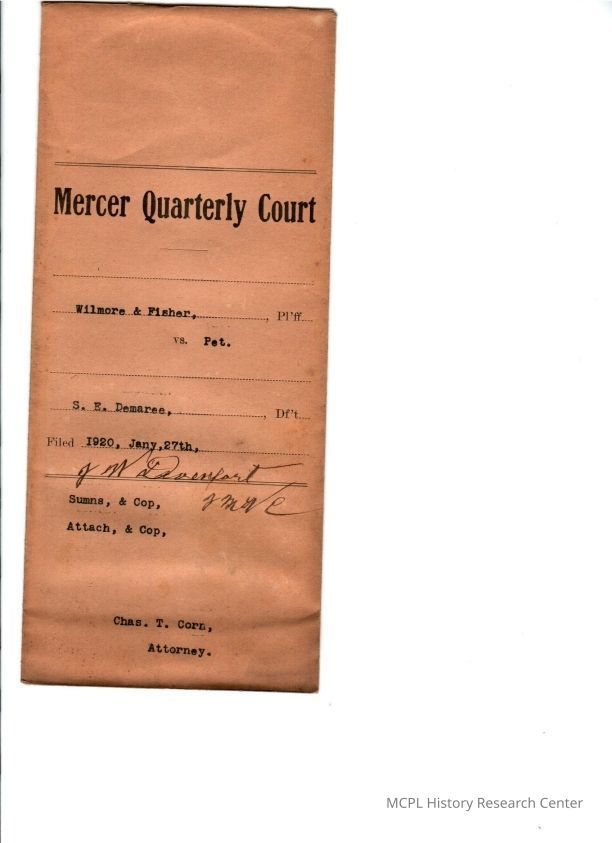 Mercer Quarterly Court
Wilmore & Fisher, , Pl'ff
vs. Pet.
S. E. Demaree, , Df't
Filed 1920, Jany,27th,
J W Davenport
Sumns, & Cop,
Attach, & Cop,
Chas. T. Corn,
Attorney.
MCPL History Research Center